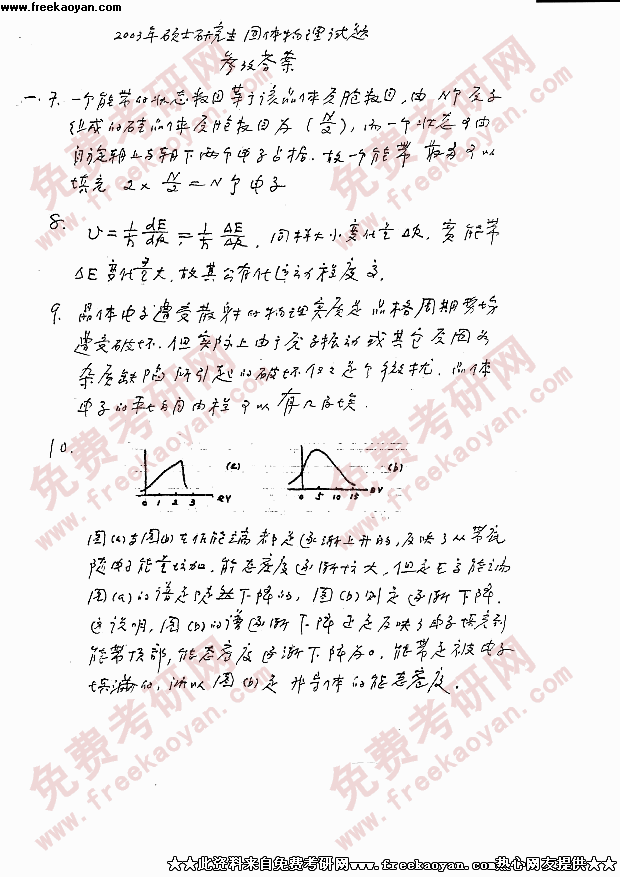 www.freekaoyan.com
2003年硕士研究生固体物理试题
参考答案
一.7. 一个能带的状态数目等于该晶体原胞数目,由N个原子
组成的硅晶体原胞数目为(N/2),而一个状态可由
自旋朝上与朝下两个电子占据.故一个能带最多可以
填充 2×N/2=N个电子
8. υ=1/ħ dE/dk=1/ħ ΔE/Δk,同样大小变化量Δk,宽能带
ΔE变化量大,故其公有化运动程度高.
9. 晶体电子遭受散射的物理实质是晶格周期势场
遭受破坏.但实际上由于原子振动或其它原因如
杂质缺陷所引起的破坏但只是个微扰.晶体
电子的平均自由程可以有几百埃.
10.
(a) (b)
0 1 2 3 eV 0 5 10 15 eV
图(a)与图(b)在低能端都是逐渐上升的,反映了从带底
随电子能量增加,能态密度逐渐增大,但是在高能端
图(a)的谱是陡然下降的,图(b)则是逐渐下降.
这说明,图(b)的谱逐渐下降正是反映了电子填充到
能带顶部,能态密度逐渐下降为0.能带是被电子
填满的,所以图(b)是非导体的能态密度.
免费考研网
www.freekaoyan.com
★★此资料来自免费考研网www.freekaoyan.com热心网友提供★★